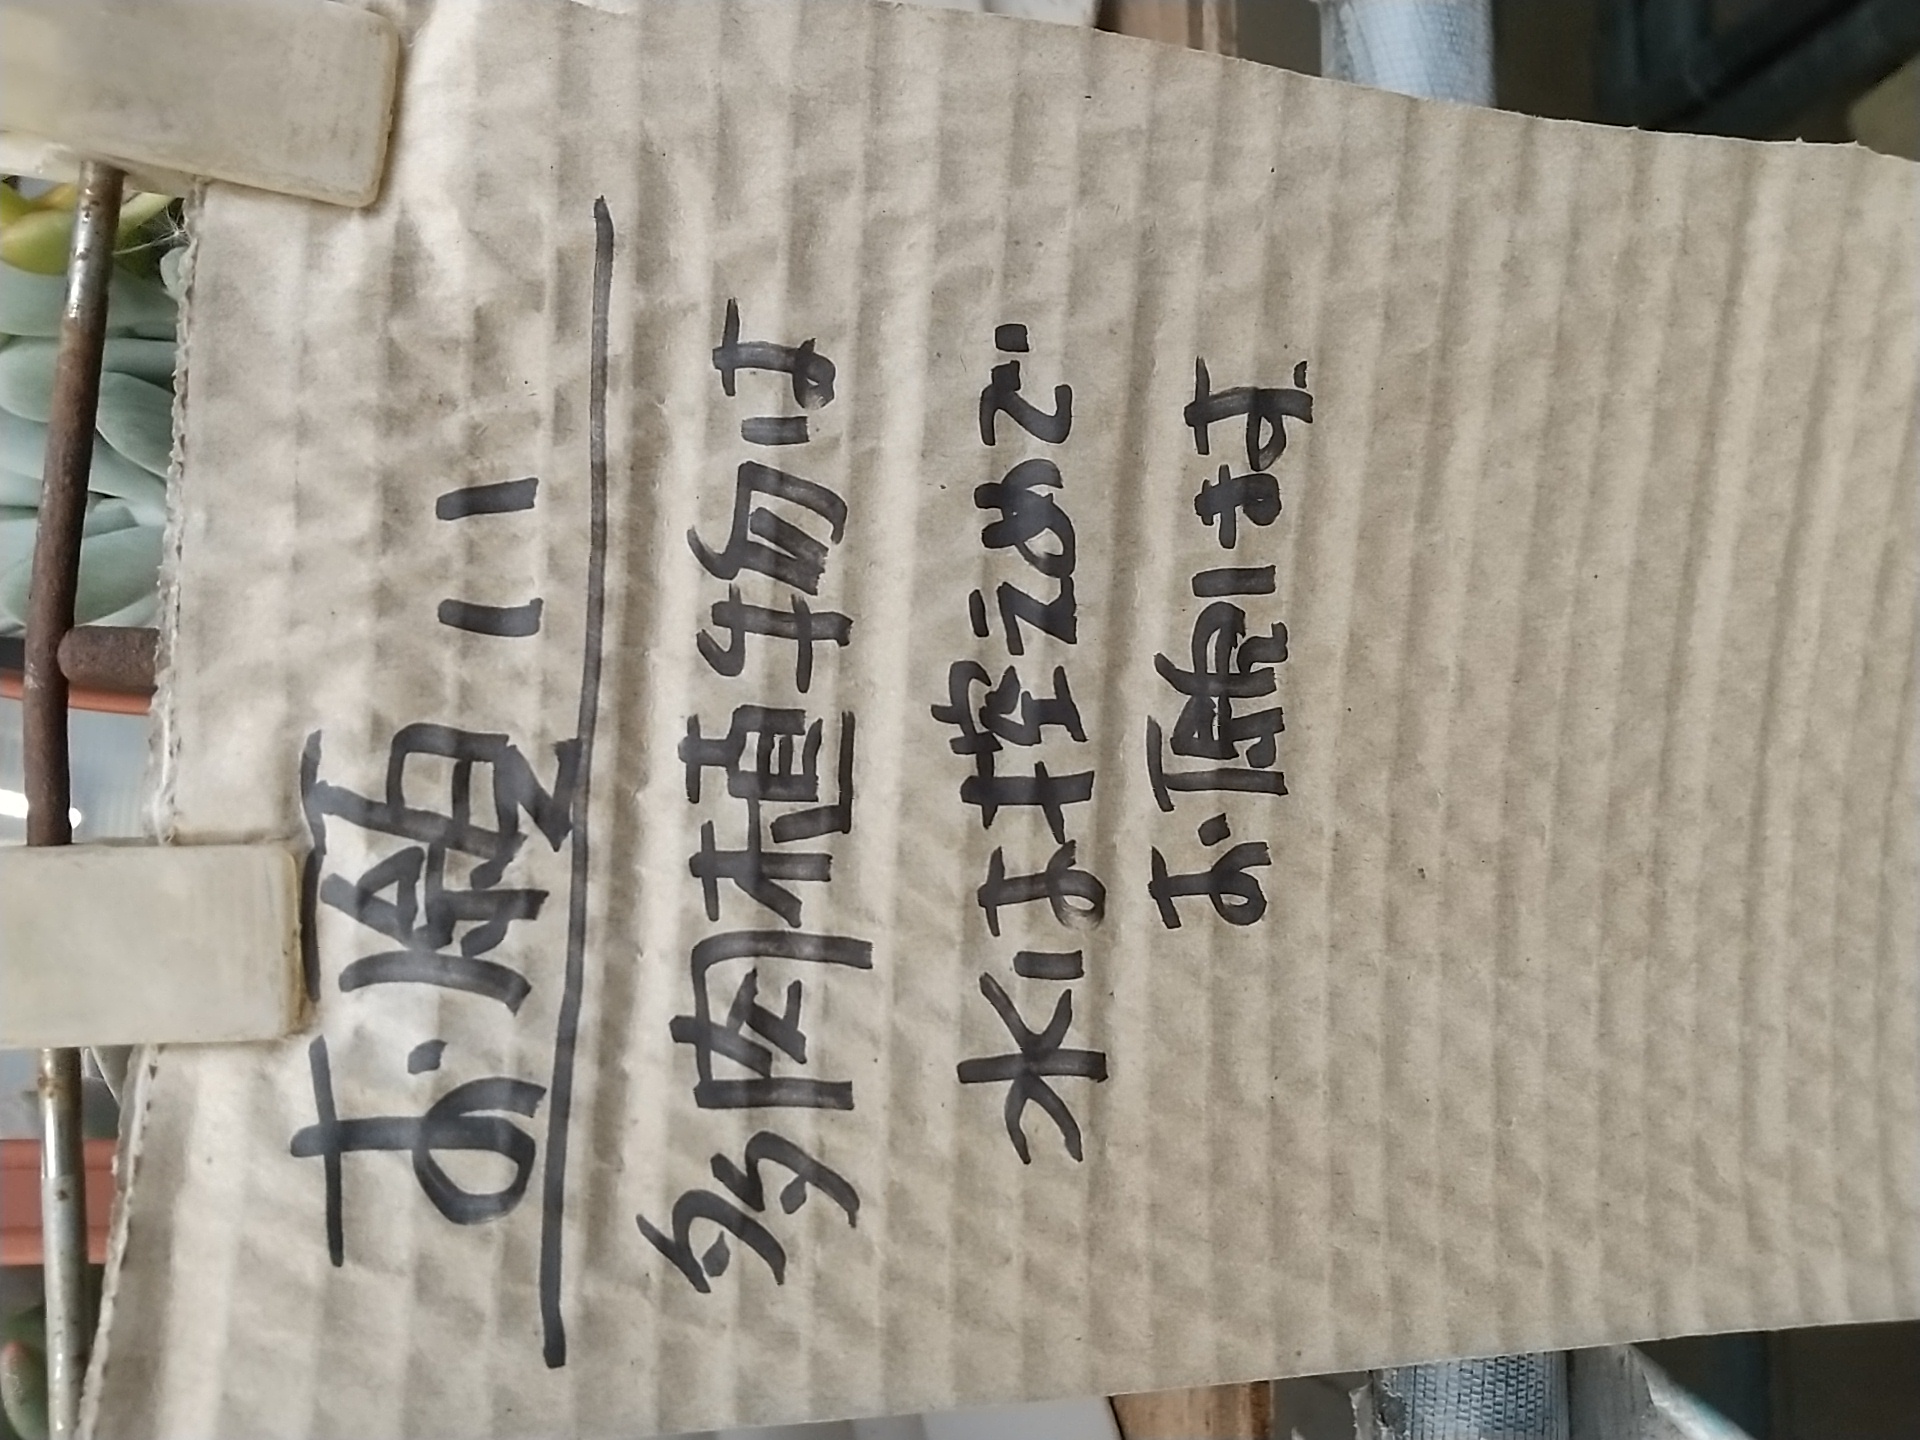 お願い
多肉植物は
水は控えめで.
お願います.